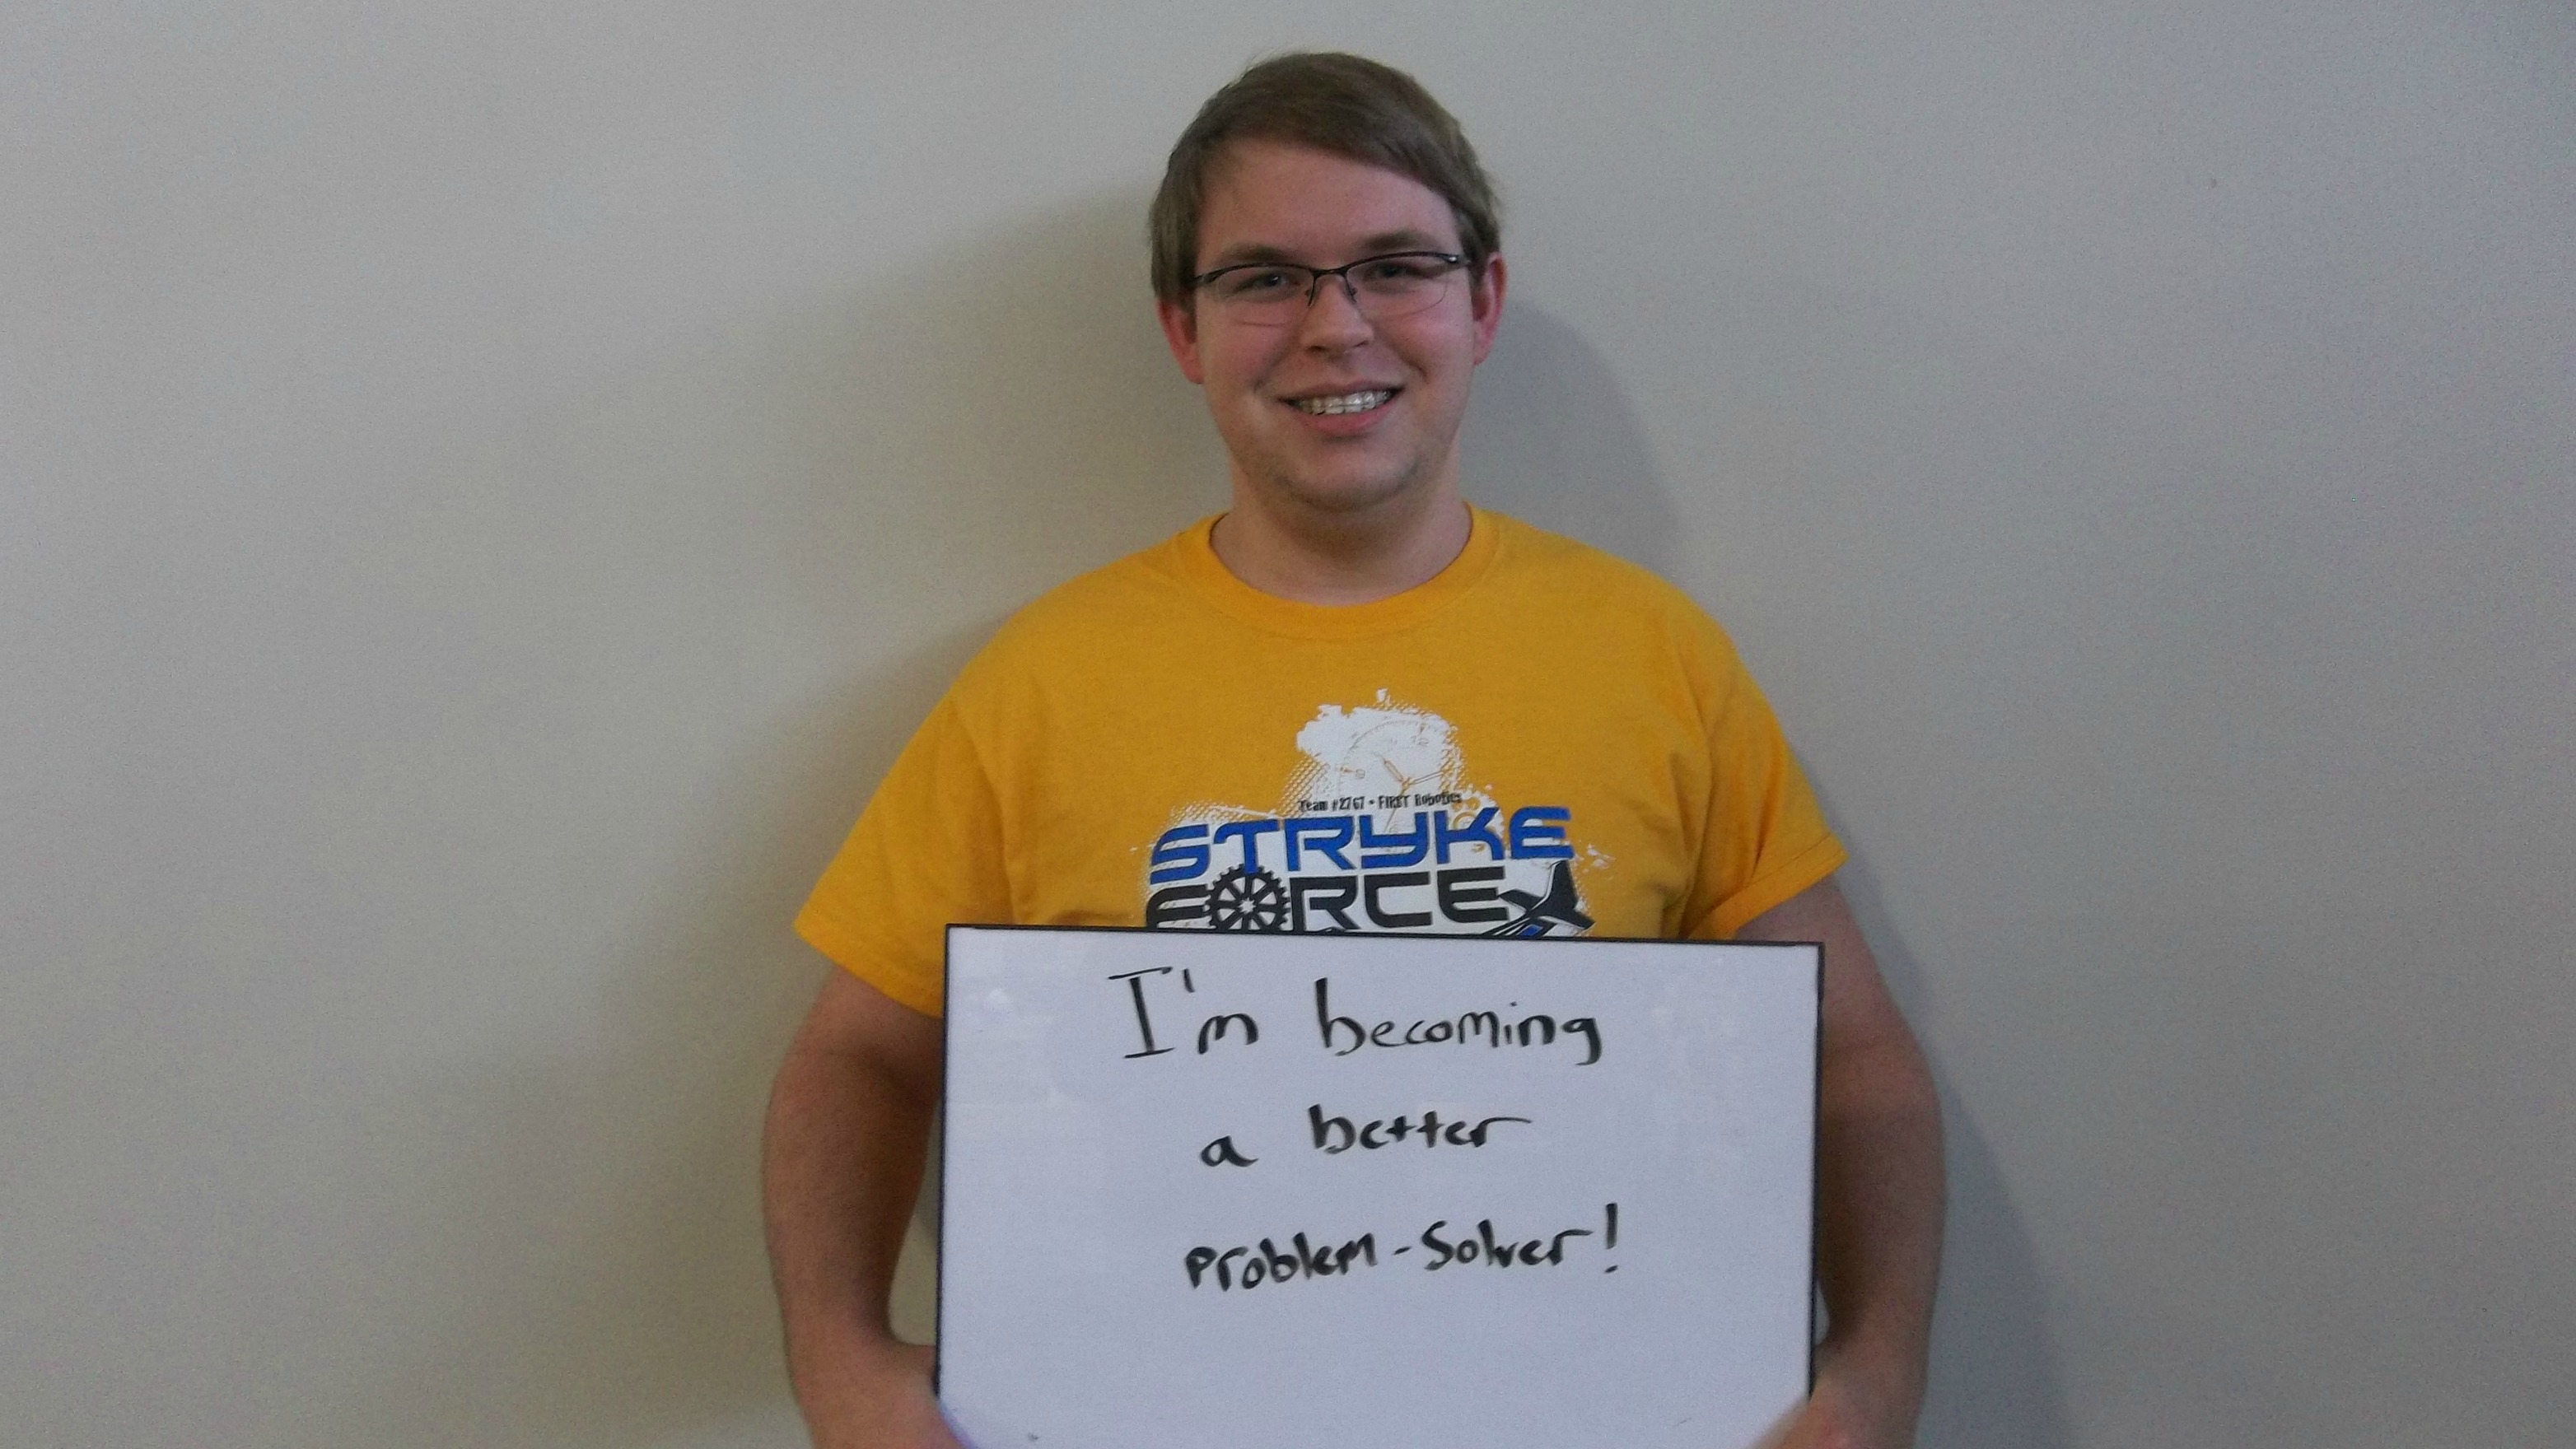 Team #2767 • FIRST Robotics
STRYKE
FORCE
I'm becoming
a better
problem-solver!